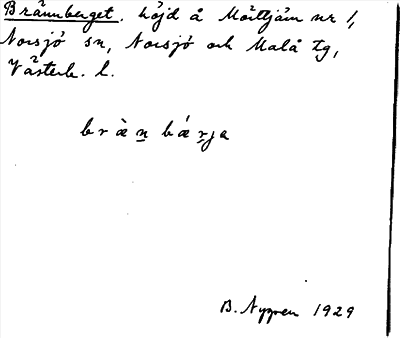 Brännberget. höjd å Mörttjärn nr 1,
Norsjö sn, Norsjö och Malå tg,
Västerb. l.
bràn bárja
B. Nygren 1929